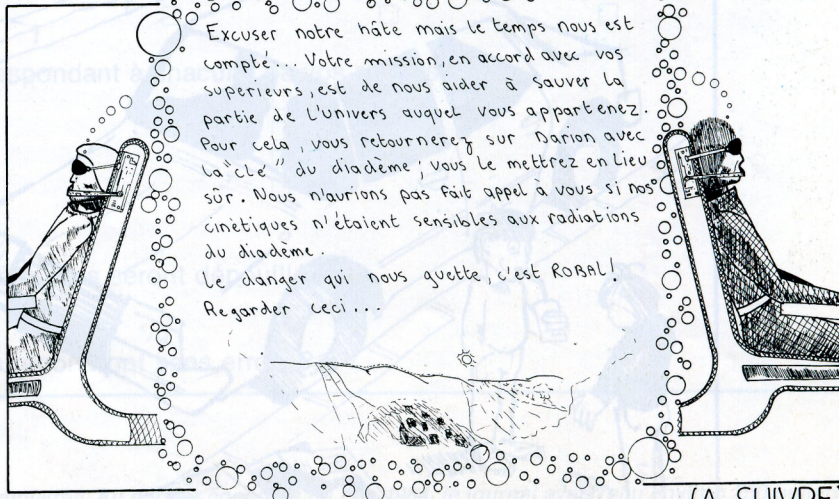 Excuser notre hâte mais le temps nous est
compté... Votre mission, en accord avec vos
superieurs, est de nous aider à sauver la
partie de L'Univers auquel vous appartenez.
Pour cela, vous retournerez sur Darion avec
La "clé" du diadème; vous le mettrez en Lieu
sûr. Nous n'aurions pas fait appel à vous si nos
cinétiques n'étaient sensibles aux radiations
du diadème.
Le danger qui nous guette, c'est ROBAL!
Regarder ceci...
(A SUIVRE